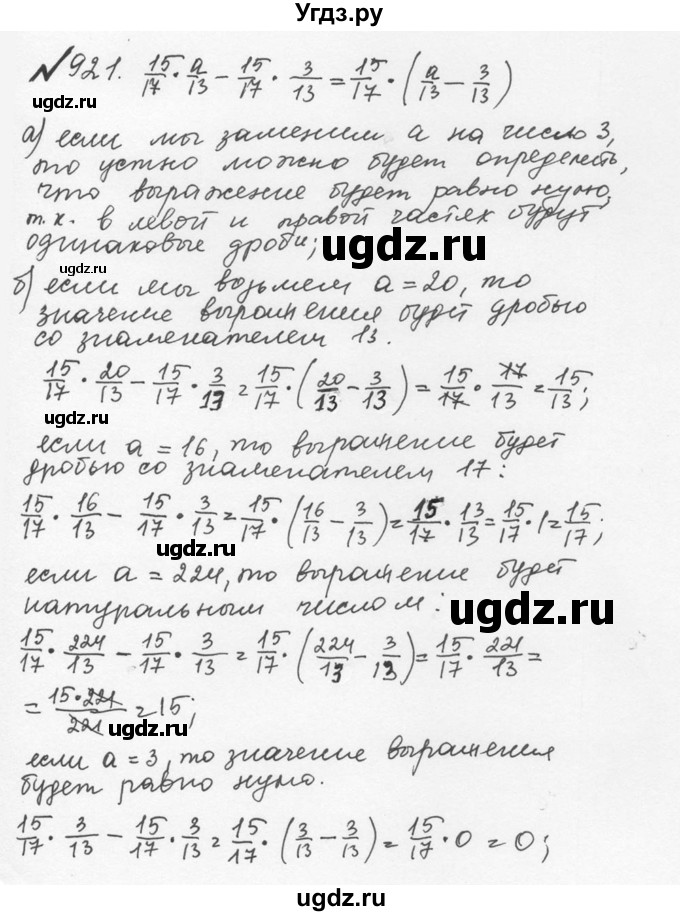 Угдз.ру
№921. 15/17 · a/13 − 15/17 · 3/13 = 15/17 · (a/13 − 3/13)
ugdz.ru
а) если мы заменим а на число 3,
то устно можно будет определить,
что выражение будет равно нулю,
т.к. в левой и правой частях будут
одинаковые дроби;
ugdz.ru
ugdz.ru
б) если мы возьмем а = 20, то
значение выражения будет дробью
со знаменателем 13.
15/17 · 20/13 − 15/17 · 3/13 = 15/17 · (20/13 − 3/13) = 15/17 · 17/13 = 15/13;
ugdz.ru
если а = 16, то выражение будет
дробью со знаменателем 17:
15/17 · 16/13 − 15/17 · 3/13 = 15/17 · (16/13 − 3/13) = 15/17 · 13/13 = 15/17 · 1 = 15/17;
ugdz.ru
если а = 224, то выражение будет
натуральным числом:
ugdz.ru
15/17 · 224/13 − 15/17 · 3/13 = 15/17 · (224/13 − 3/13) = 15/17 · 221/13 =
= 15·221/221 = 15;
ugdz.ru
если а = 3, то значение выражения
будет равно нулю.
15/17 · 3/13 − 15/17 · 3/13 = 15/17 · (3/13 − 3/13) = 15/17 · 0 = 0;
ugdz.ru